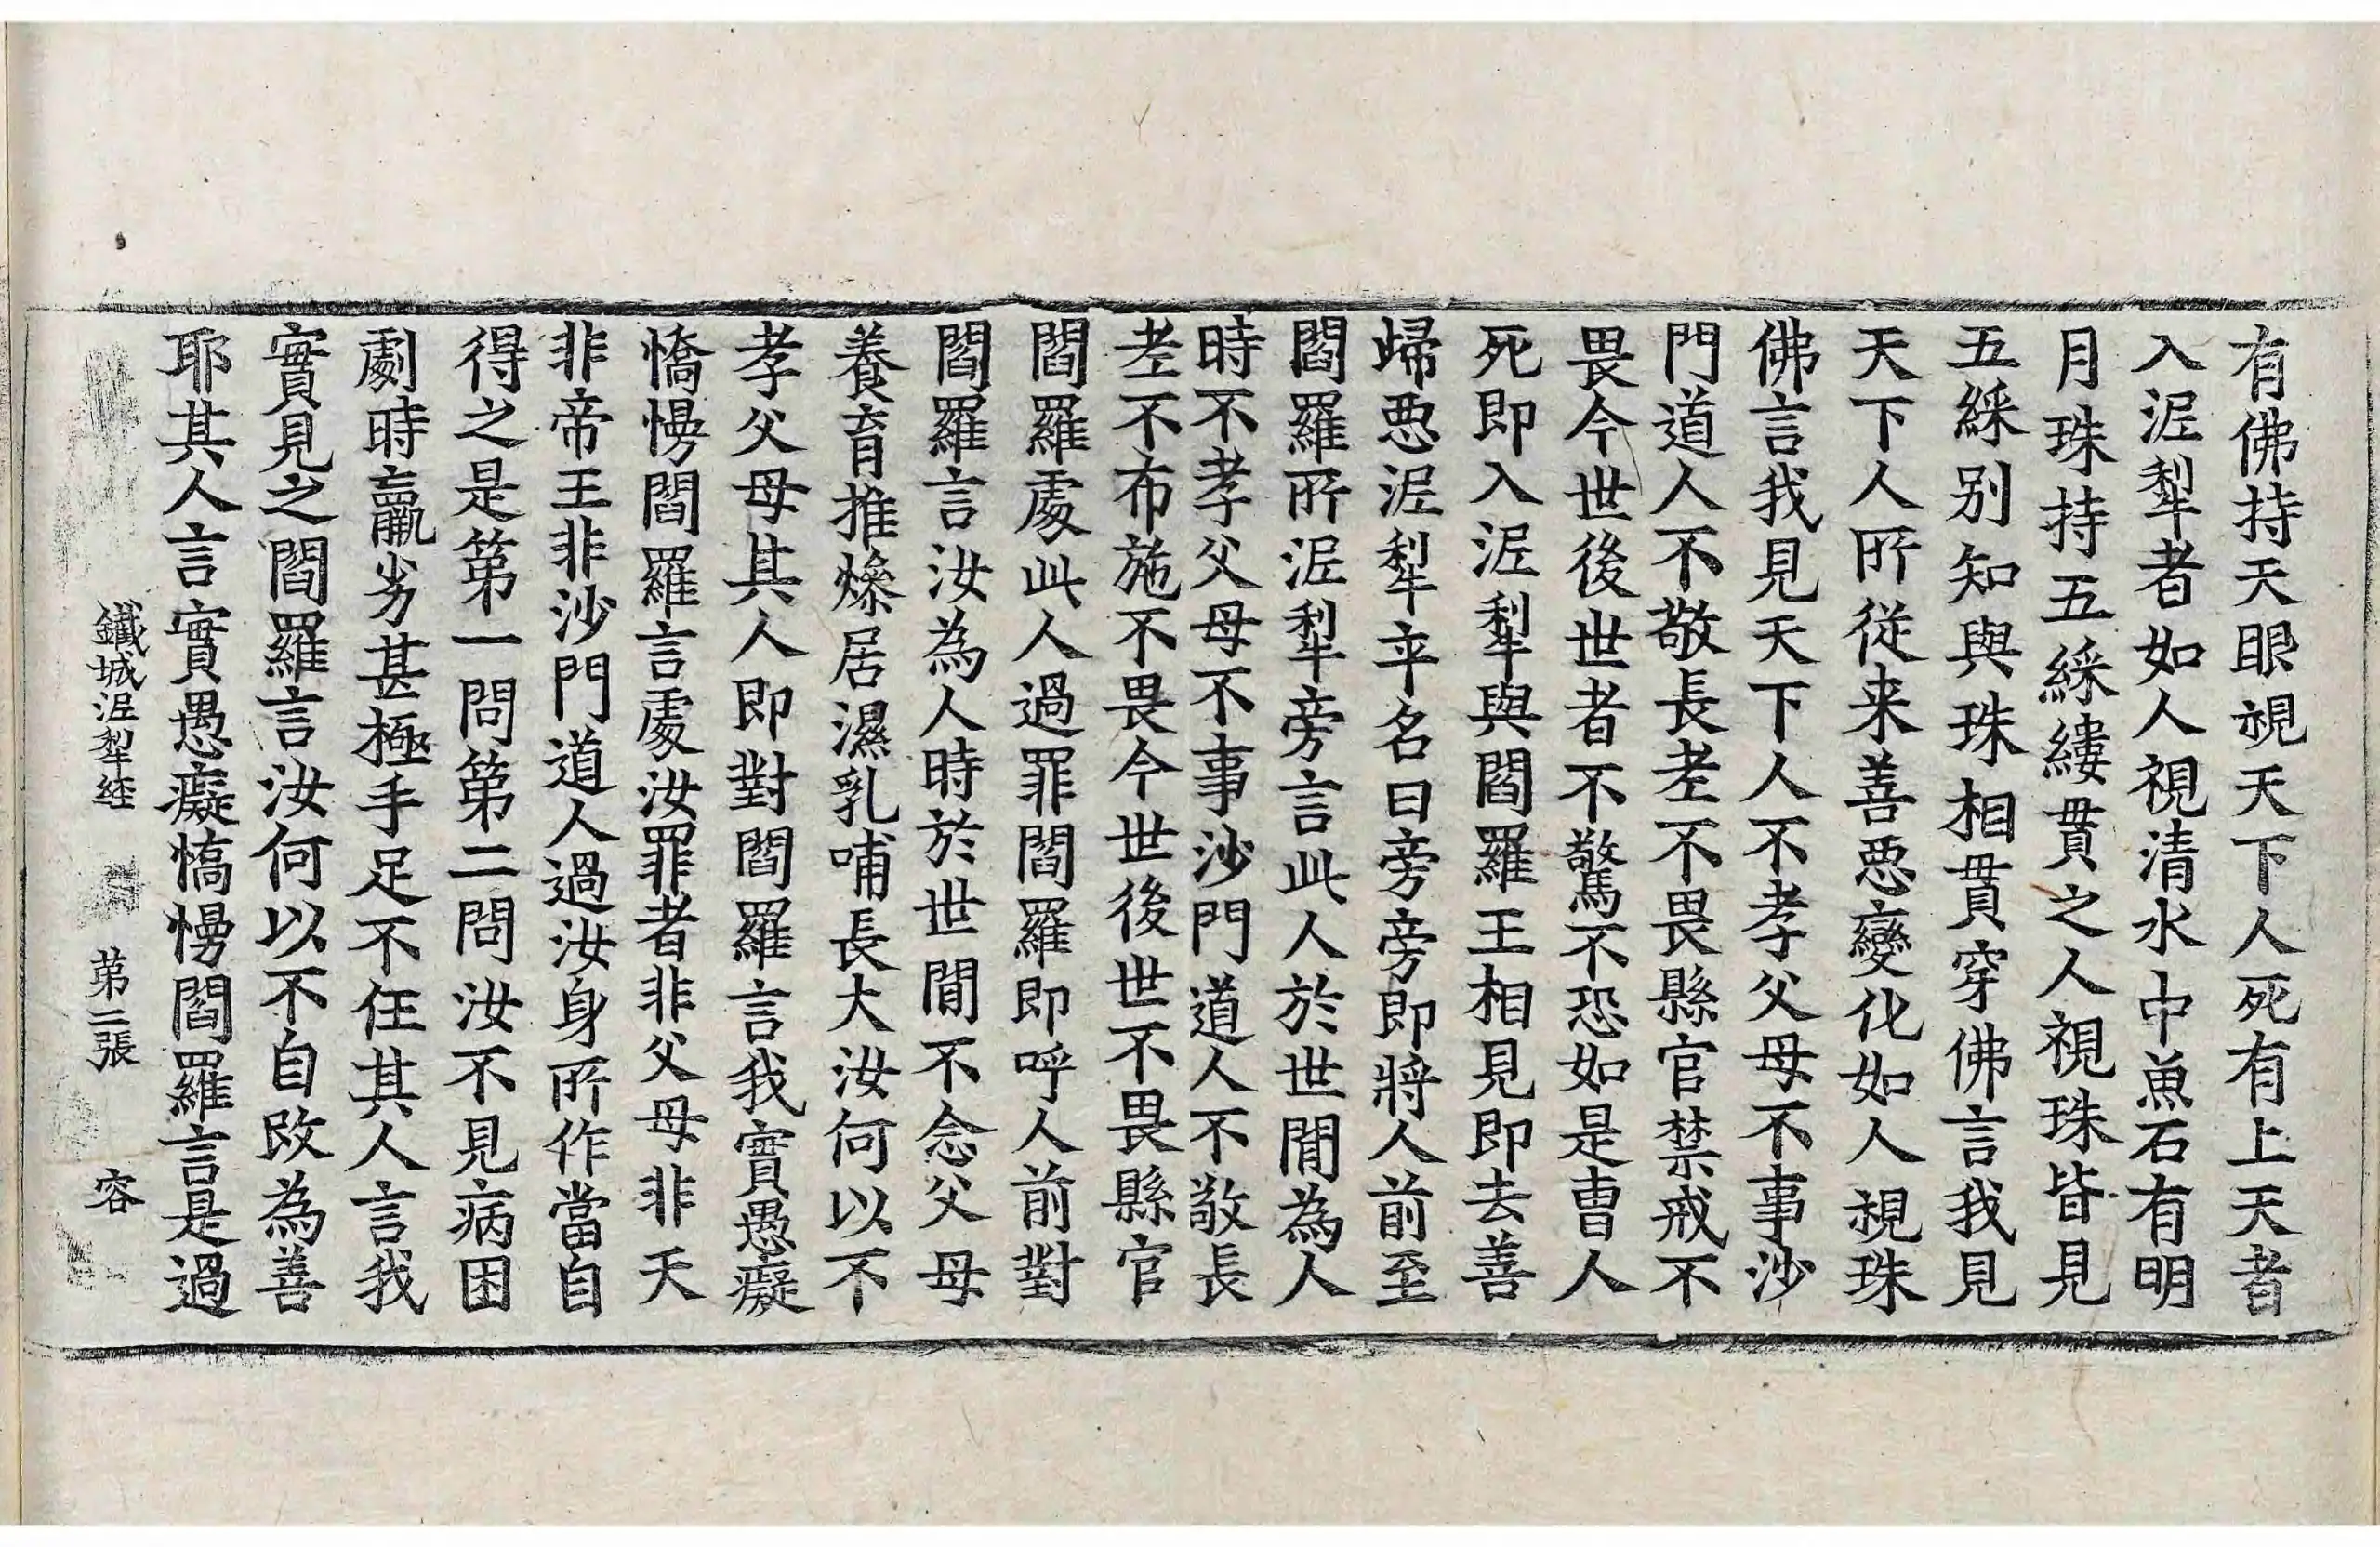 有佛持天眼視天下人死有上天者
入泥犁者如人視清水中魚石有明
月珠持五綵縷貫之人視珠皆見
五綵別知與珠相貫穿佛言我見
天下人所從来善惡變化如人視珠
佛言我見天下人不孝父母不事沙
門道人不敬長老不畏縣官禁戒不
畏今世後世者不驚不恐如是曹人
死即入泥犁與閻羅王相見即去善
歸惡泥犁卒名曰旁旁即將人前至
閻羅所泥犁旁言此人於世間為人
時不孝父母不事沙門道人不敬長
老不布施不畏今世後世不畏縣官
閻羅處此人過罪閻羅即呼人前對
閻羅言汝為人時於世間不念父母
養育推燥居濕乳哺長大汝何以不
孝父母其人即對閻羅言我實愚癡
憍慢閻羅言處汝罪者非父母非天
非帝王非沙門道人過汝身所作當自
得之是第一問第二問汝不見病困
劇時羸劣甚極手足不任其人言我
實見之閻羅言汝何以不自改為善
耶其人言實愚癡憍慢閻羅言是過
鐵城泥犁経 第二張 容